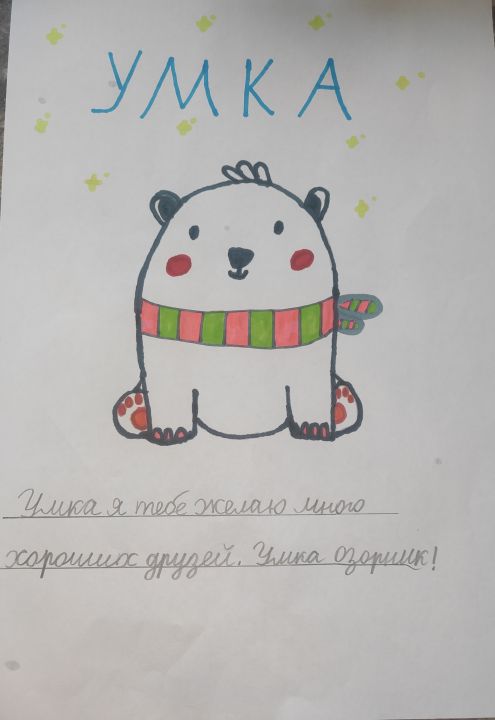 УМКА
Умка я тебе желаю много
хороших друзей. Умка озорник!